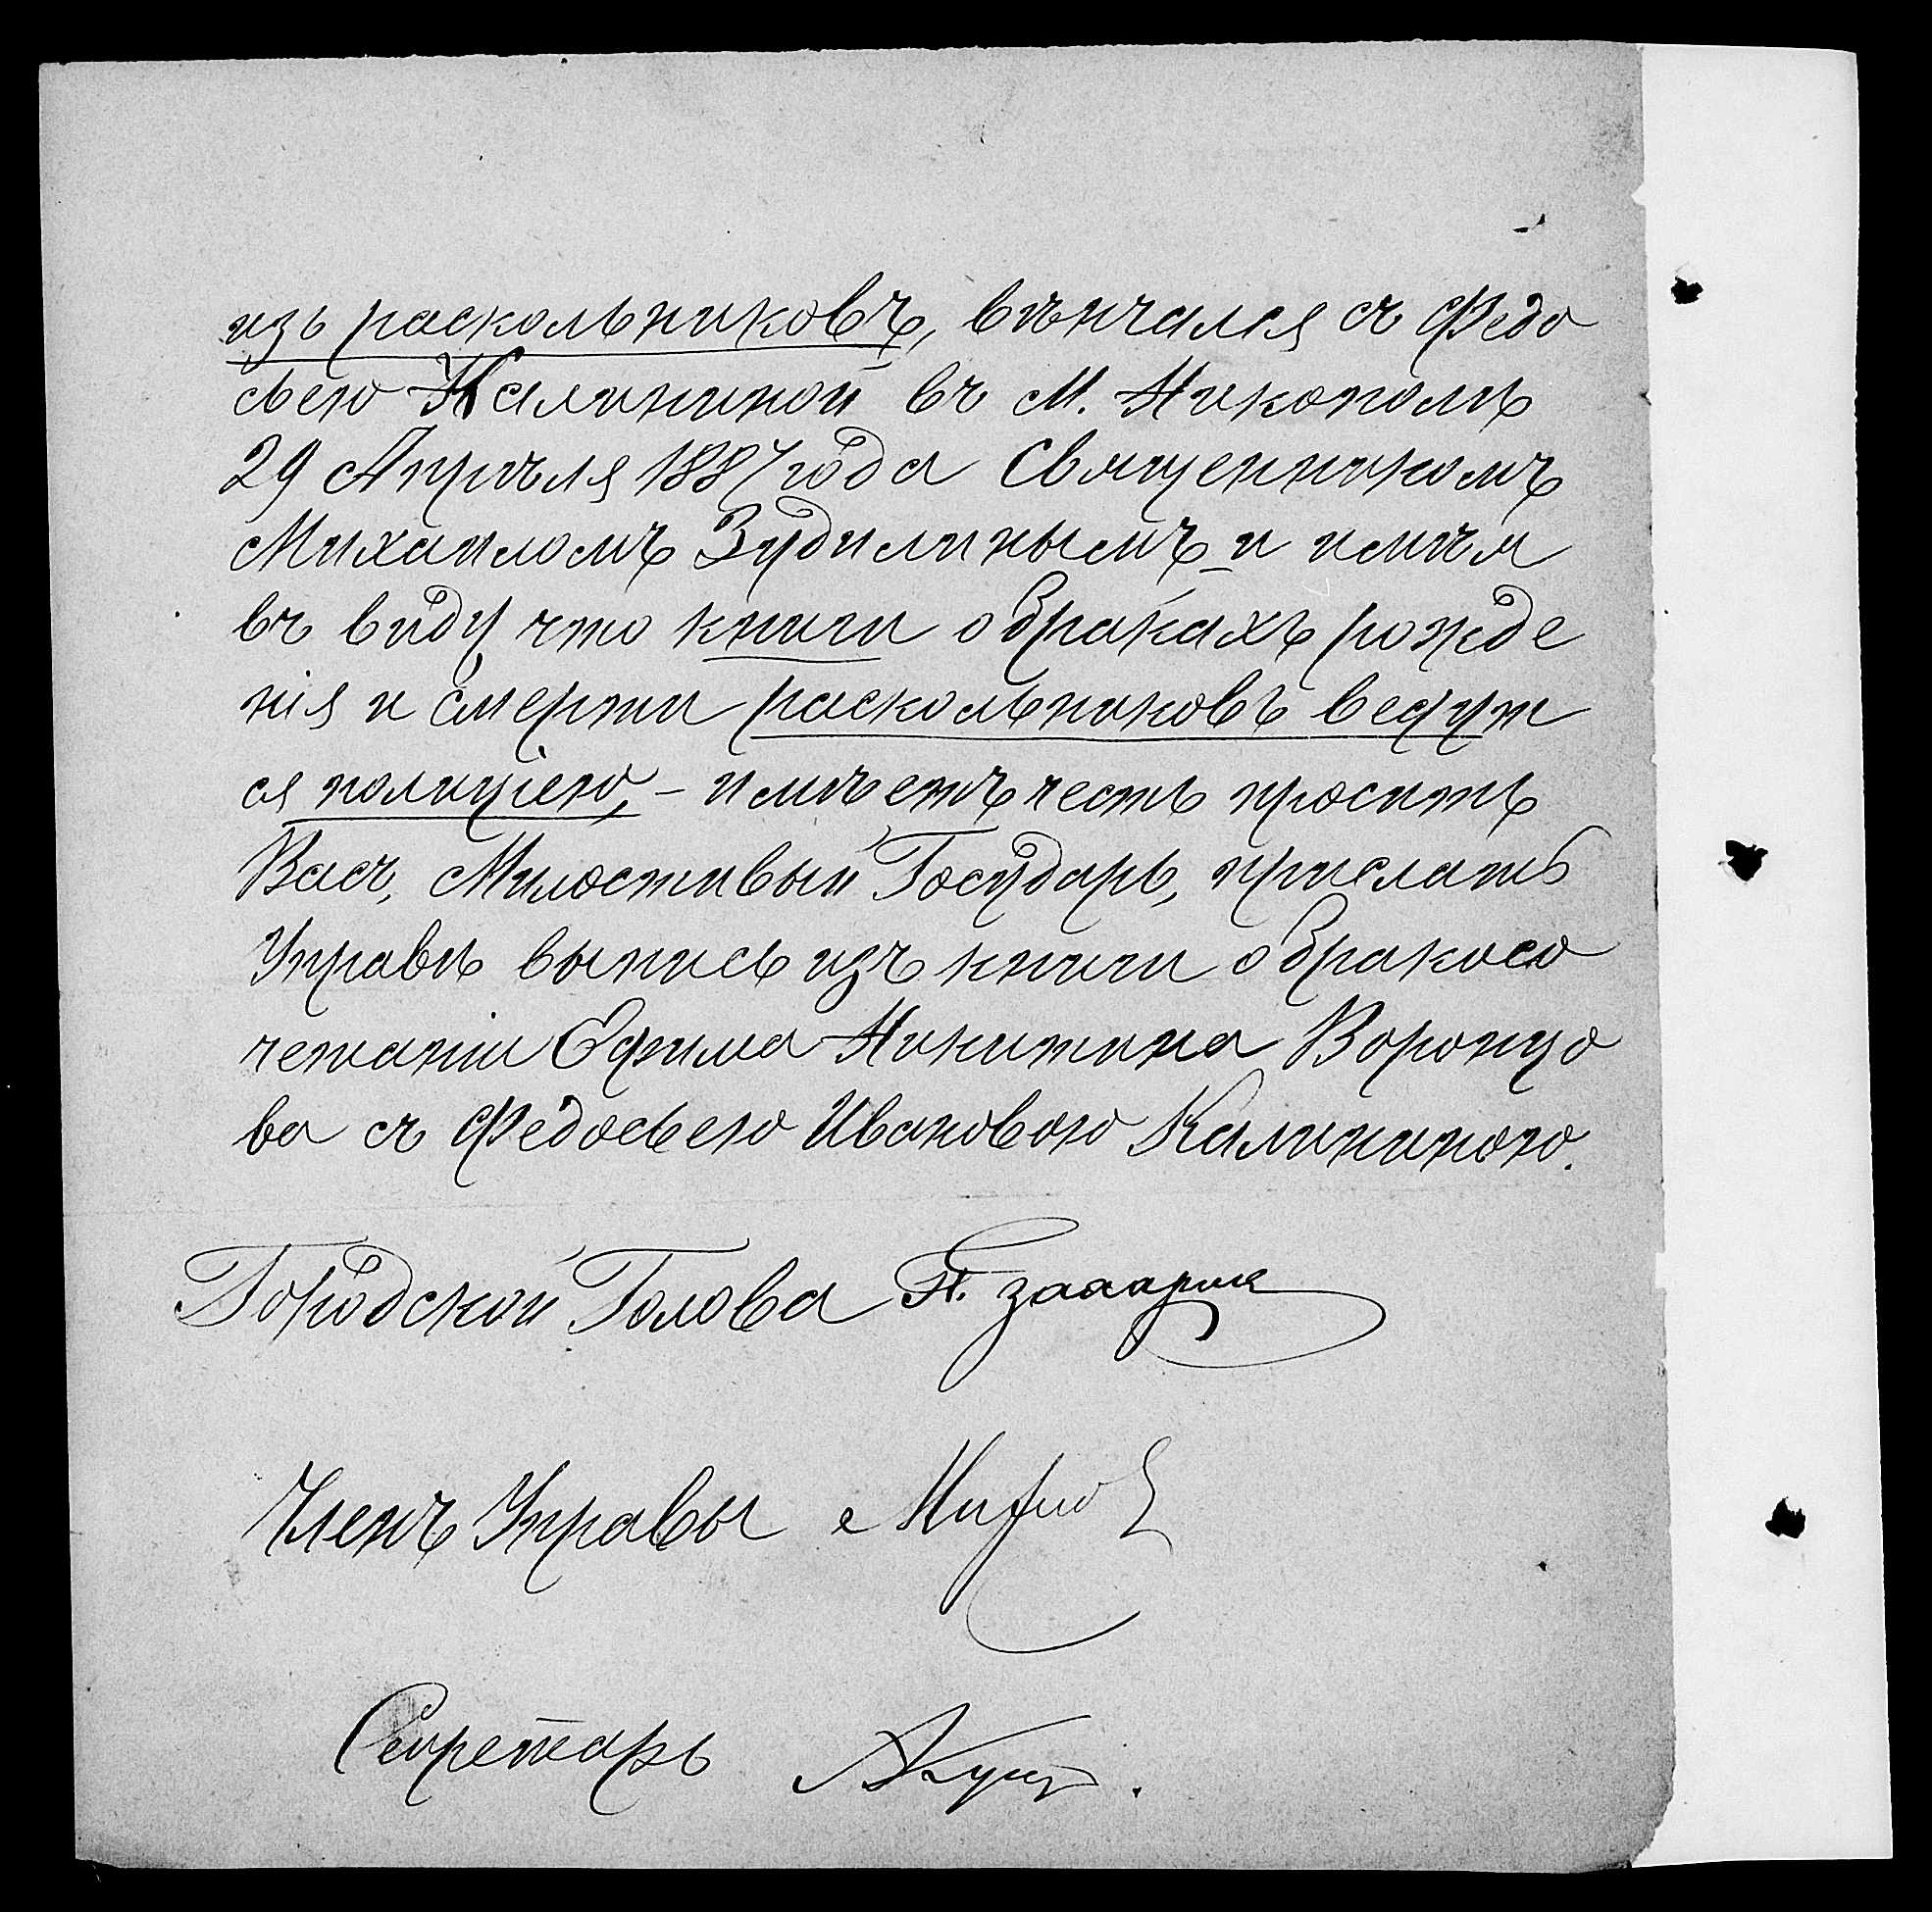 изъ раскольниковъ, вѣнчался съ Федо
сьею Калининой въ М. Никополѣ
29 Апрѣля 1887 года Священникомъ
Михаиломъ Зудилинымъ и имѣя
въ виду что книги о бракахъ рожде
нія и смерти раскольниковъ ведут
ся полиціею, – имѣетъ честь просить
Васъ, Милостивый Государь, прислать
Управѣ выпись изъ книги о бракосо
четаніи Ефима Никитина Воронцо
ва съ Федосьею Ивановою Калининою.
Городской Голова
Членъ Управы
Секретарь